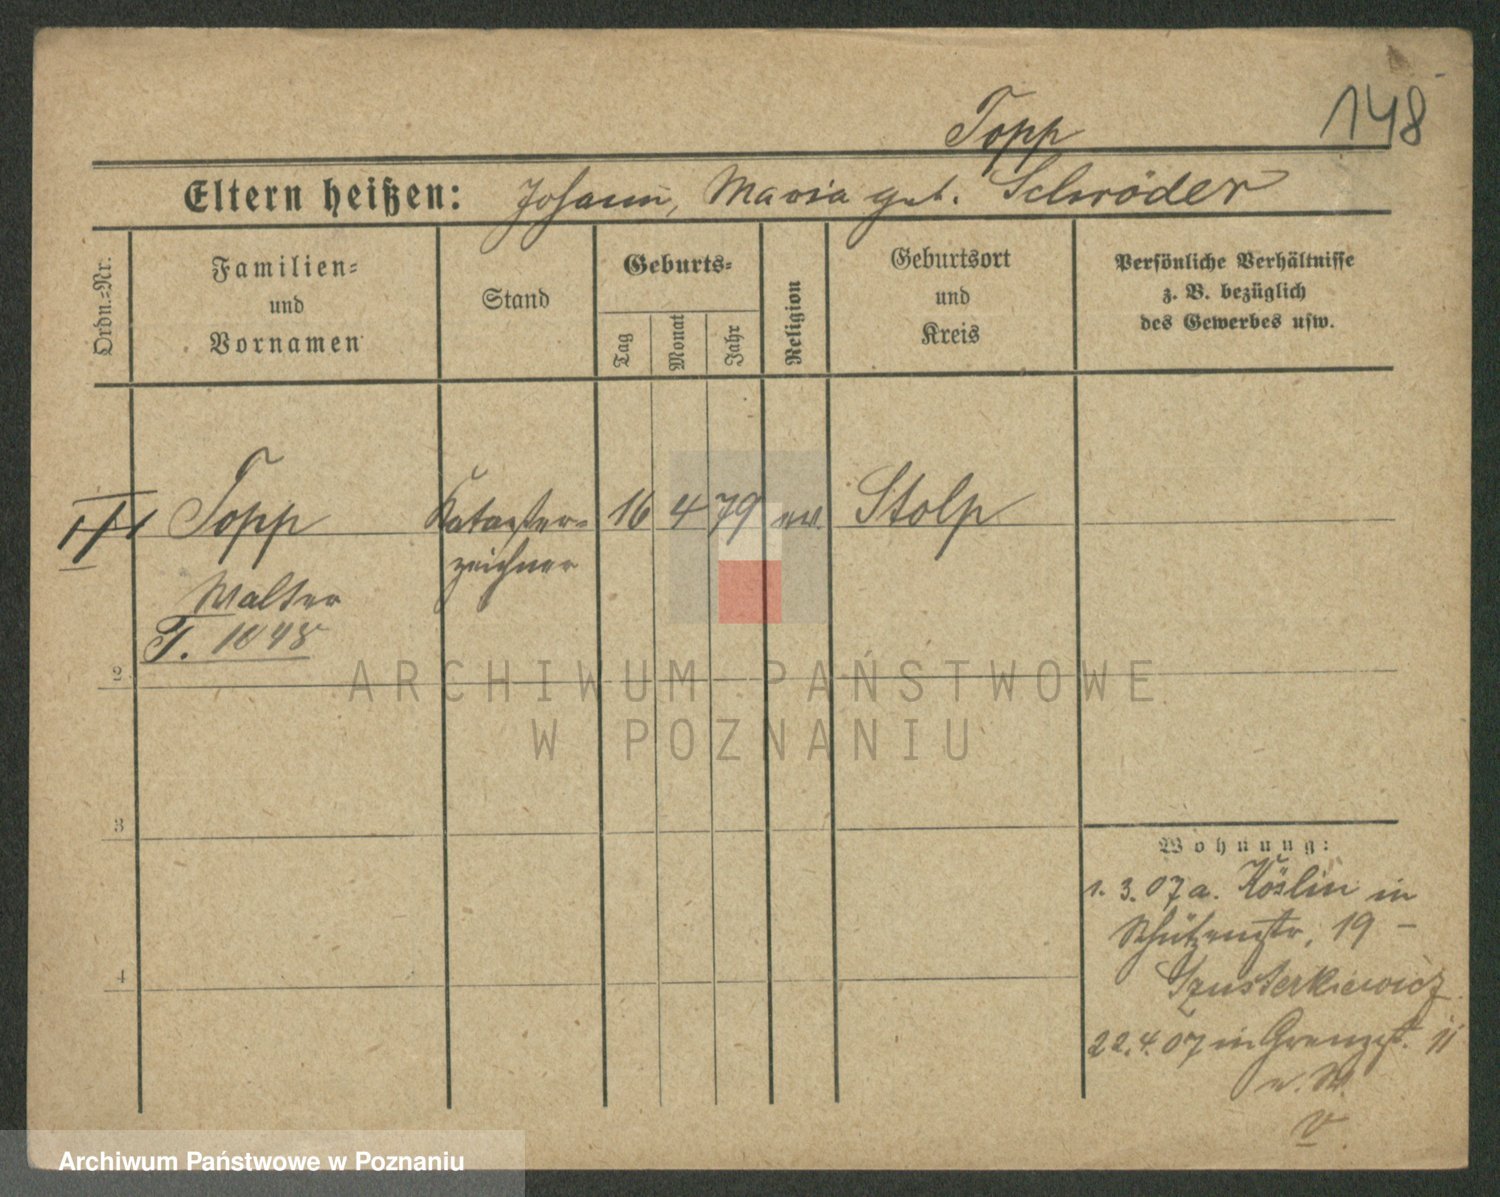 Topp
148
Eltern heißen: Johann, Maria geb. Schröder
Ordn.=Nr.
Familien=
und
Vornamen
Stand
Geburts=
Tag
Monat
Jahr
Religion
Geburtsort
und
Kreis
Persönliche Verhältnisse
z. B. bezüglich
des Gewerbes usw.
Topp Kataster= 16 4 79 ev. Stolp
zeichner
Walter
T. 1848
2
ARCHIWUM PAŃSTWOWE
W POZNANIU
3
Wohnung:
1. 3. 07 a. Köslin in
Schützenstr. 19 –
4
Szusterkiewicz
22. 4. 07 in Grenzst. 11
v.
Archiwum Państwowe w Poznaniu